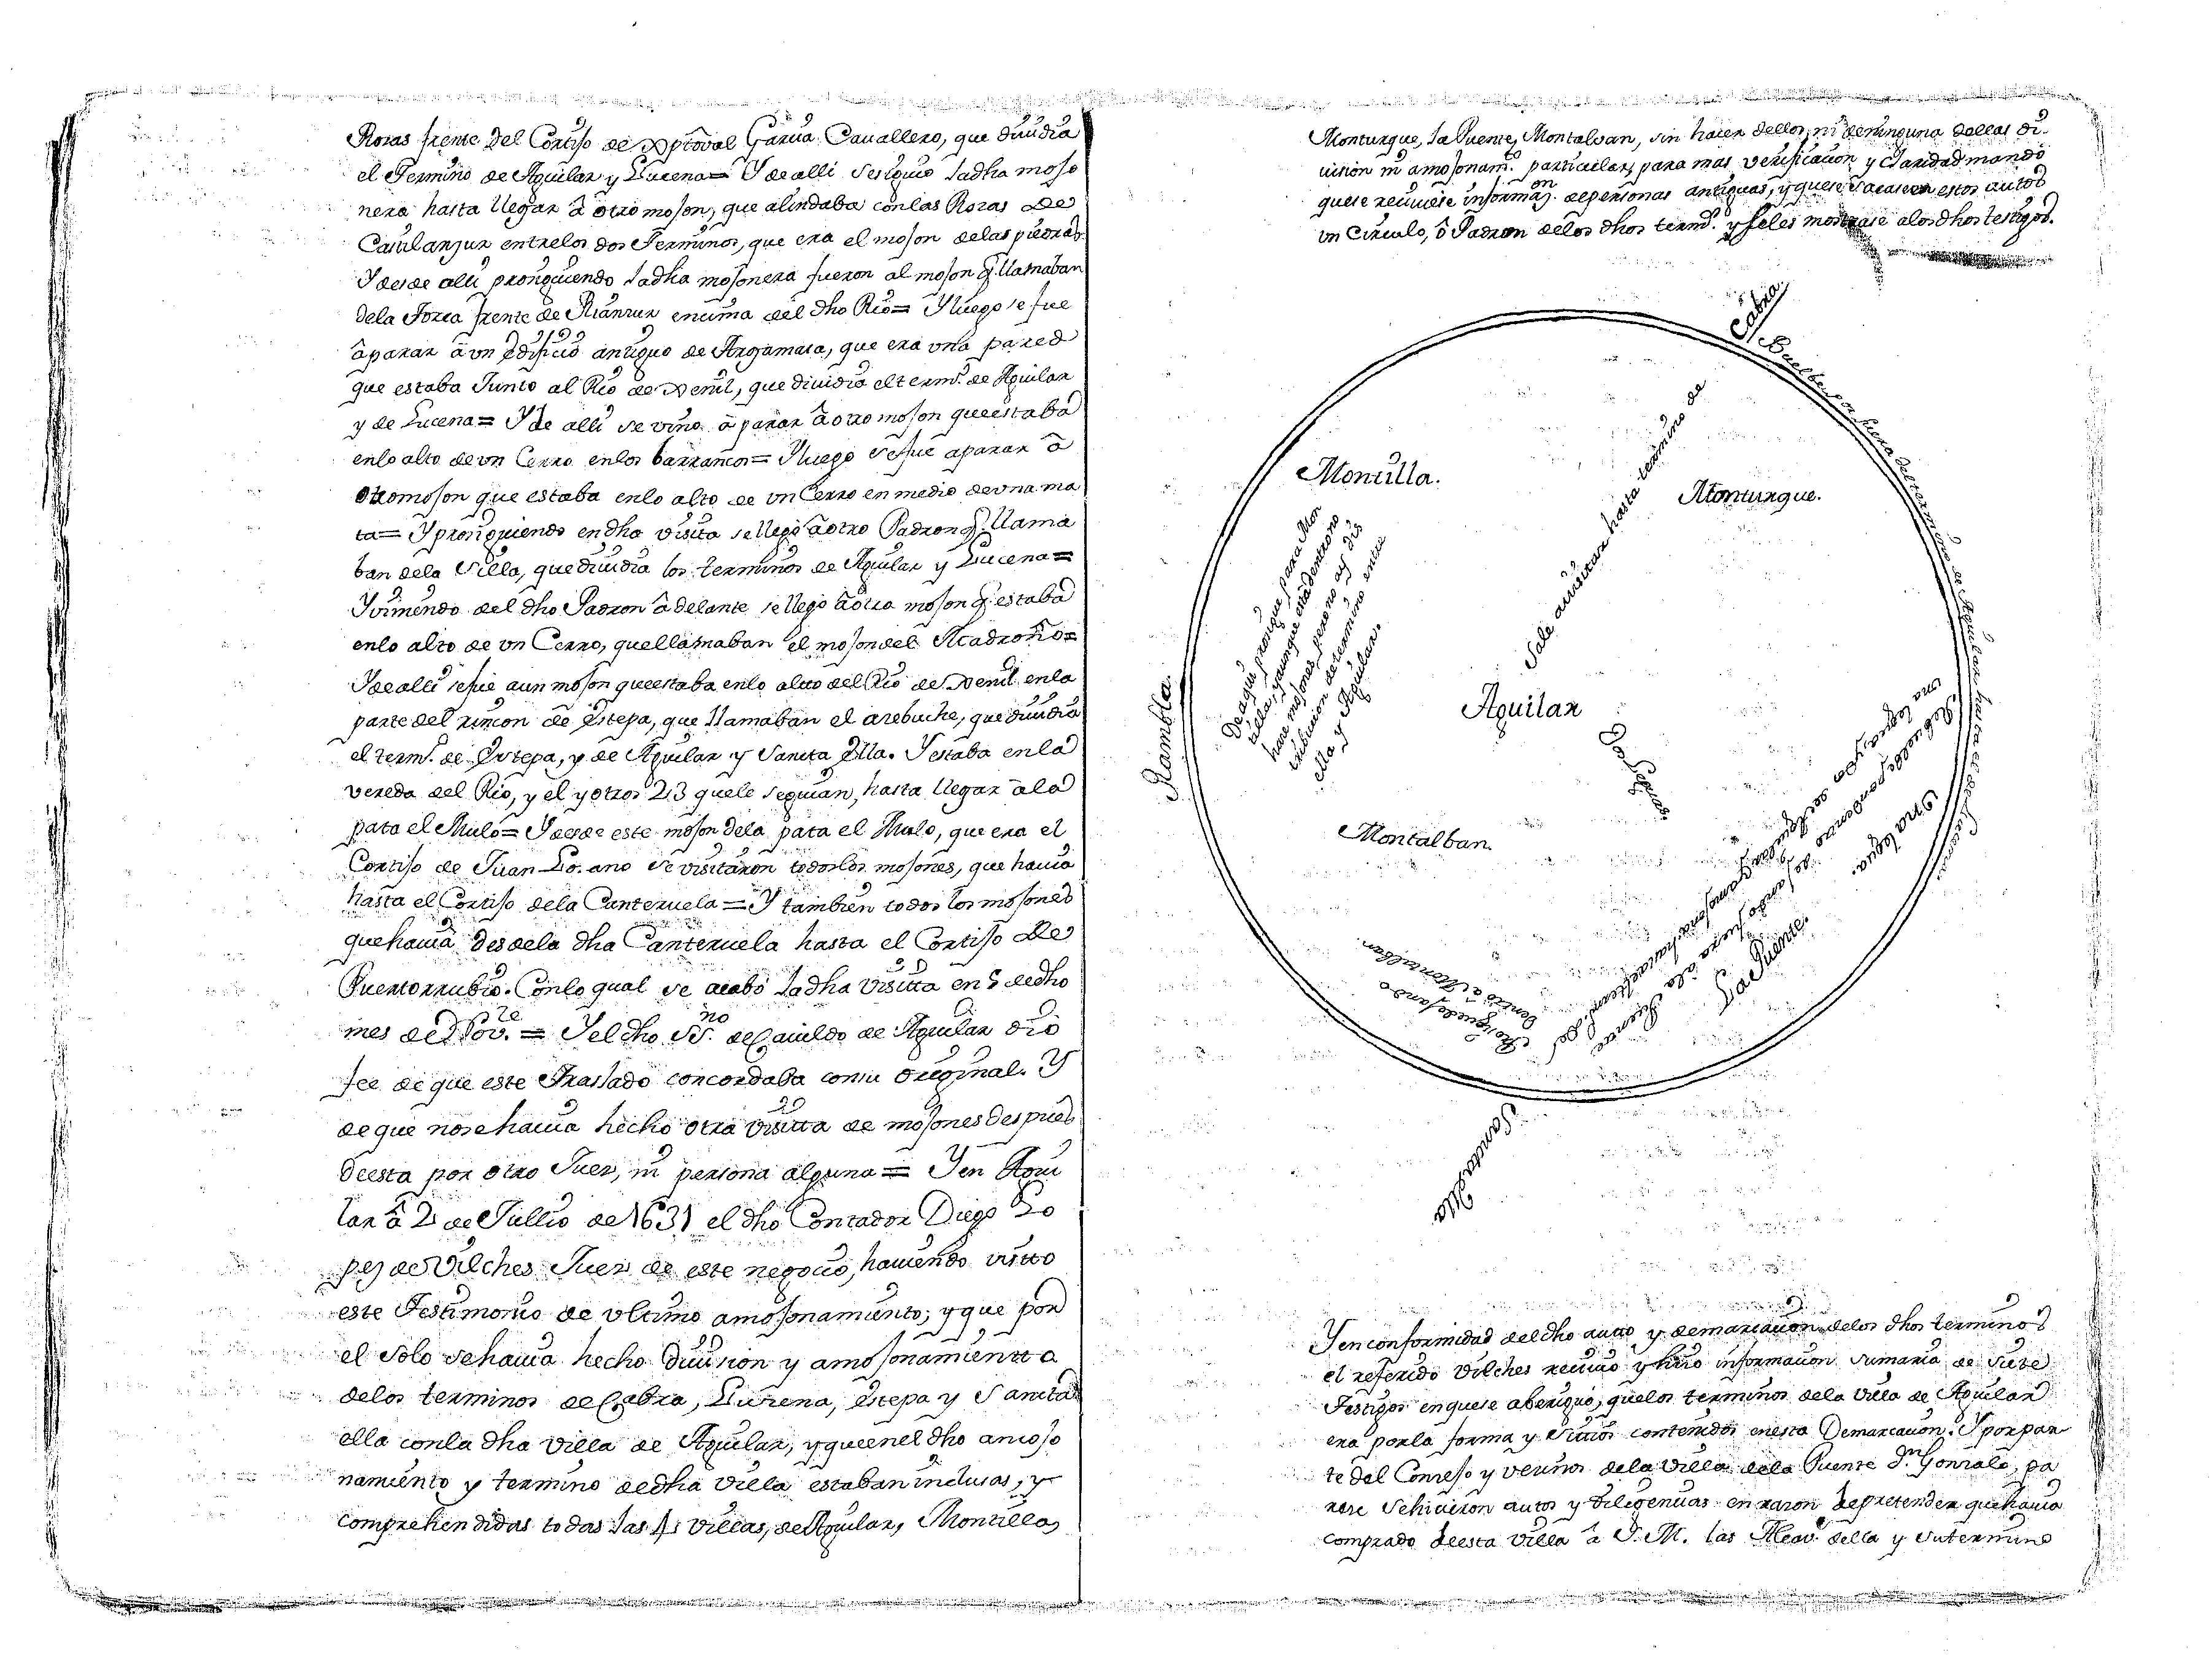 Rozas frente del Cortijo de Xptoval Garcia Cavallero, que diuidia
el Termino de Aguilar y Lucena = Y de alli se siguio la dha mojo
nera hasta llegar â otro mojon, que alindaba con las Rozas de
entre los dos Terminos, que era el mojon de las piedras.
Y desde alli prosiguiendo la dha mojonera fueron al mojon q. llamaban
de la Forca frente de encima del dho Rio = Y luego se fue
â parar â vn Edificio antiguo de Argamasa, que era vna pared
que estaba Junto al Rio de Xenil, que diuidia el term.º de Aguilar
y de Lucena = Y de alli se vino â parar â otro mojon que estaba
en lo alto de vn Cerro en los barrancos = Y luego se fue a parar â
otro mojon que estaba en lo alto de vn Cerro en medio de vna ma
ta = Y prosiguiendo en dha visita se llego â otro Padron q. llama
ban de la Silla, que diuidia los terminos de Aguilar y Lucena =
Y viniendo del dho Padron âdelante se llego â otro mojon q. estaba
en lo alto de vn Cerro, que llamaban el mojon del
Y de alli se fue a un mojon que estaba en lo altto del Rio de Xenil en la
parte del rincon de Estepa, que llamaban el azebuche, que diuidia
el term.º de Estepa, y de Aguilar y Sancta Ella. Y estaba en la
vereda del Rio, y el y otros 213 que le seguian, hasta llegar â la
pata el Mulo = Y desde este mojon de la pata el Mulo, que era el
Cortijo de Juan Lozano se visitaron todos los mojones, que hauia
hasta el Cortijo de la Canteruela = Y tambien todos los mojones
que hauia desde la dha Canteruela hasta el Cortijo de
Puertorrubio. Con lo qual se acabo la dha visitta en 5 de dho
mes de Nov.re = Y el dho SS.no de Cauildo de Aguilar dio
fee de que este Traslado concordaba con su original. Y
de que no se hauia hecho otra visitta de mojones despues
de esta por otro Juez, ni persona alguna = Y en Agui
lar â 2 de Jullio de 1631 el dho Contador Diego Lo
pez de Vilches Juez de este negocio, hauiendo visto
este Testimonio de vltimo amojonamiento; y que por
el solo se hauia hecho diuision y amojonamientto
de los terminos de Cabra, Lucena, Estepa y Sancta
ella con la dha villa de Aguilar, y que en el dho amojo
namiento y termino de dha villa estaban inclusas, y
comprehendidas todas las villas, de Aguilar, Montilla,
Monturque, la Puente, Montalvan, sin hacer dellos, ni de ninguna dellas di
uision ni amojonam.to particular, para mas verificacion y claridad mando
que se reciuiese informaz.on de personas antiguas, y que se sacase en estos autos
vn Circulo, ô Padron de los dhos term.os y se les mostrase a los dhos testigos.
Cabra
Buelbe por fuera del termino de Aguilar hasta el de Lucena
Sale a visitar hasta termino de
Montilla.
Monturque.
De aqui prosigue para Mon
tilla, y aunque era dentro no
hace mojones, pero no ay dis
tribucion de termino entre
ella y Aguilar.
Rambla.
Aguilar
Montalban.
vna legua
La Puente.
Prosigue dejando
dentro â Montalban
Sancta Ella
Y en conformidad del dho autto y demarcacion de los dhos terminos
el referido Vilches reciuio y hizo informacion sumaria de siete
Testigos en que se aberiguo, que los terminos de la villa de Aguilar
era por la forma y sitios contenidos en esta Demarcacion. Y por par
te del Consejo y vecinos de la villa de la Puente d.n Gonzalo, pa
rece se hicieron autos y diligencias en razon de pretender que hauia
comprado de esta villa â S. M. las Alcav.s della y su termino